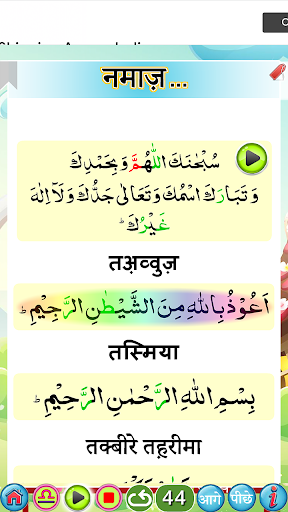 नमाज़ ...
سُبْحٰنَكَ اللّٰهُمَّ وَبِحَمْدِكَ
وَتَبَارَكَ اسْمُكَ وَتَعَالٰى جَدُّكَ وَلَآ اِلٰهَ
غَيْرُكَ ؕ
तअ़व्वुज़
اَعُوْذُ بِاللّٰهِ مِنَ الشَّيْطٰنِ الرَّجِيْمِ ؕ
तस्मिया
بِسْمِ اللّٰهِ الرَّحْمٰنِ الرَّحِيْمِ ؕ
तक्बीरे तह़रीमा
44 आगे पीछे